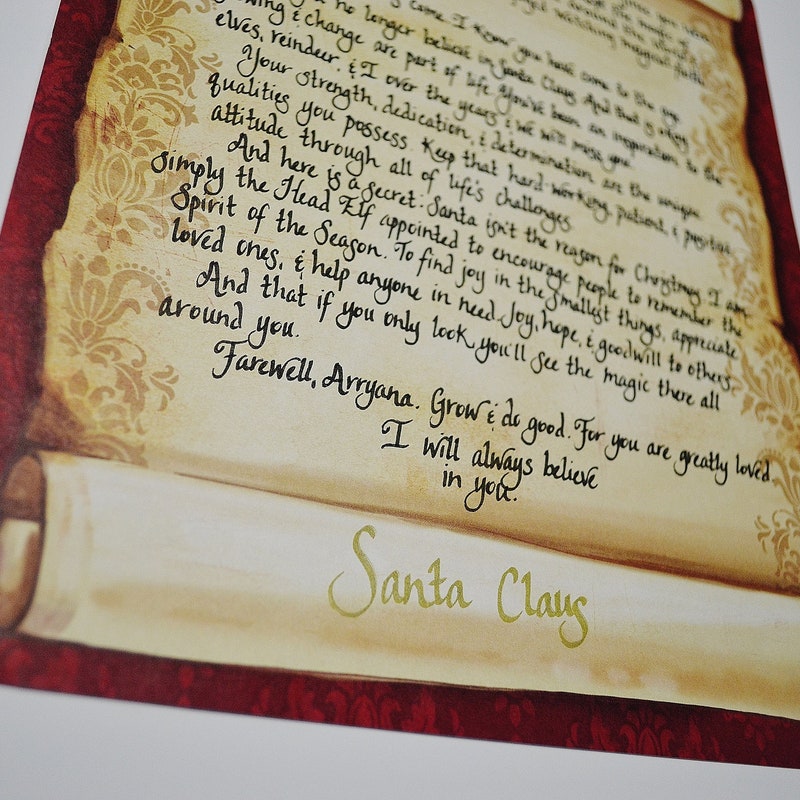 come. I know you have come to the age
no longer believe in Santa Claus. And that is okay.
& change are part of life. You've been an inspiration to the
elves, reindeer, & I over the years & we will miss you.
Your strength, dedication, & determination are the unique
qualities you possess. Keep that hard-working, patient, & positive
attitude through all of life's challenges.
And here is a secret: Santa isn't the reason for Christmas. I am
simply the Head Elf appointed to encourage people to remember the
Spirit of the Season. To find joy in the smallest things, appreciate
loved ones, & help anyone in need. Joy, hope, & goodwill to others.
And that if you only look, you'll see the magic there all
around you.
Farewell, Arryana. Grow & do good. For you are greatly loved.
I will always believe
in you.
Santa Claus